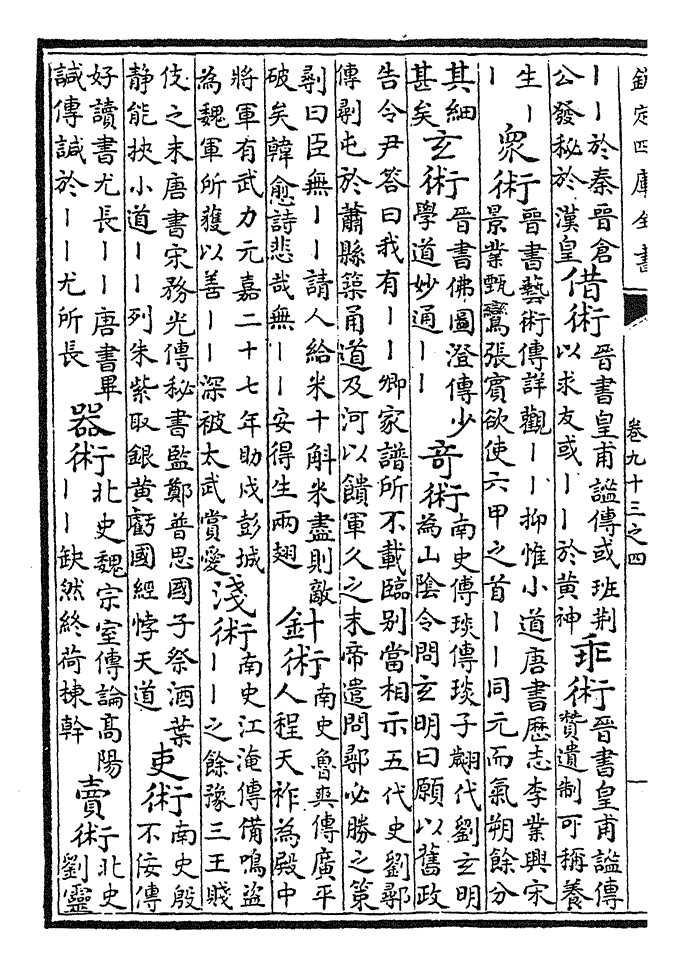 欽定四庫全書 卷九十三之四
丨丨於秦晉倉
公發秘於漢皇
借術
晉書皇甫謐傳或班荆
以求友或丨丨於黄神
乖術
晉書皇甫謐傳
贊遺制可稱養
生丨
丨
衆術
晉書藝術傳詳觀丨丨抑惟小道唐書厯志李業興宋
景業甄鸞張賓欲使六甲之首丨丨同元而氣朔餘分
其細
甚矣
玄術
晉書佛圖澄傳少
學道妙通丨丨
奇術
南史傅琰傳琰子翽代劉玄明
為山陰令問玄明曰願以舊政
告令尹答曰我有丨丨卿家譜所不載臨别當相示五代史劉鄩
傳鄩屯於蕭縣築甬道及河以饋軍久之末帝遣問鄩必勝之策
鄩曰臣無丨丨請人給米十斛米盡則敵
破矣韓愈詩悲哉無丨丨安得生兩翅
針術
南史魯爽傳廣平
人程天祚為殿中
將軍有武力元嘉二十七年助戍彭城
為魏軍所獲以善丨丨深被太武賞愛
淺術
南史江淹傳備鳴盗
丨丨之餘豫三王賤
伎之末唐書宋務光傳秘書監鄭普思國子祭酒葉
静能挾小道丨丨列朱紫取銀黄虧國經悖天道
吏術
南史殷
不佞傳
好讀書尤長丨丨唐書畢
諴傳諴於丨丨尤所長
器術
北史魏宗室傳論髙陽
丨丨缺然終荷棟幹
賣術
北史
劉靈